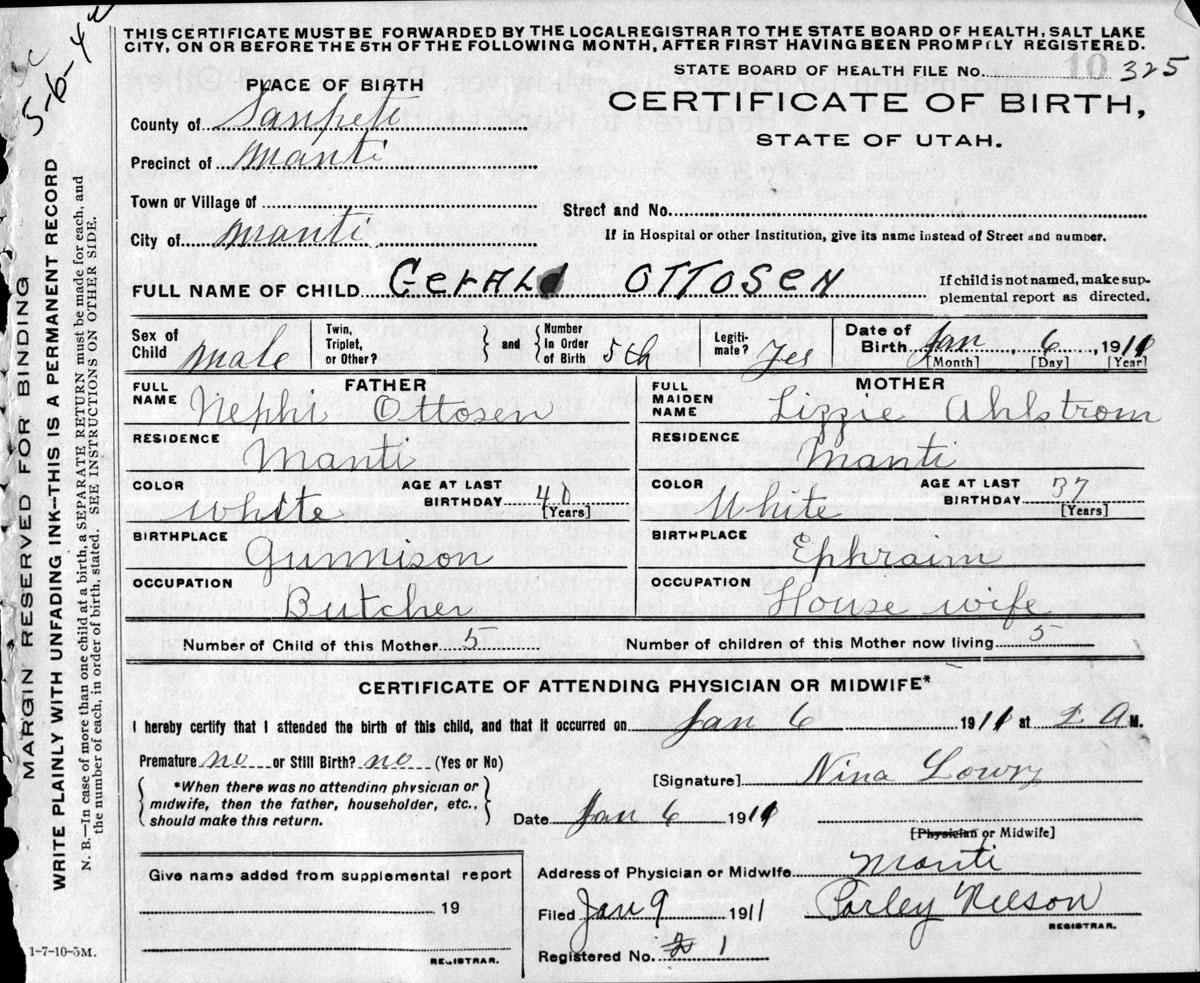 5-6-4
THIS CERTIFICATE MUST BE FORWARDED BY THE LOCAL REGISTRAR TO THE STATE BOARD OF HEALTH, SALT LAKE
CITY, ON OR BEFORE THE 5TH OF THE FOLLOWING MONTH, AFTER FIRST HAVING BEEN PROMPTLY REGISTERED.
STATE BOARD OF HEALTH FILE No. 10 325
PLACE OF BIRTH
CERTIFICATE OF BIRTH,
STATE OF UTAH.
County of Sanpete
Precinct of Manti
Town or Village of
Street and No.
City of Manti
If in Hospital or other Institution, give its name instead of Street and number.
FULL NAME OF CHILD Gerald Ottosen
If child is not named, make sup-
plemental report as directed.
Sex of Child Male
Twin, Triplet, or Other?
and
Number In Order of Birth 5th
Legiti-mate? Yes
Date of Birth Jan 6, 1911
[Month] [Day] [Year]
FATHER
MOTHER
FULL NAME Nephi Ottosen
FULL MAIDEN NAME Lizzie Ahlstrom
RESIDENCE Manti
RESIDENCE Manti
COLOR White AGE AT LAST BIRTHDAY 40 [Years]
COLOR White AGE AT LAST BIRTHDAY 37 [Years]
BIRTHPLACE Gunnison
BIRTHPLACE Ephraim
OCCUPATION Butcher
OCCUPATION House wife
Number of Child of this Mother 5
Number of children of this Mother now living 5
CERTIFICATE OF ATTENDING PHYSICIAN OR MIDWIFE*
I hereby certify that I attended the birth of this child, and that it occurred on Jan 6 1911 at 2 A M.
Premature no or Still Birth? no (Yes or No)
[Signature] Nina Lowry
*When there was no attending physician or
midwife, then the father, householder, etc.,
should make this return.
Date Jan 6 1911
[Physician or Midwife]
Give name added from supplemental report
19
REGISTRAR.
Address of Physician or Midwife Manti
Filed Jan 9 1911 Parley Nielson
REGISTRAR.
Registered No. 1
1-7-10-5M.
MARGIN RESERVED FOR BINDING
WRITE PLAINLY WITH UNFADING INK—THIS IS A PERMANENT RECORD
N. B.—In case of more than one child at a birth, a SEPARATE RETURN must be made for each, and
the number of each, in order of birth, stated. SEE INSTRUCTIONS ON OTHER SIDE.